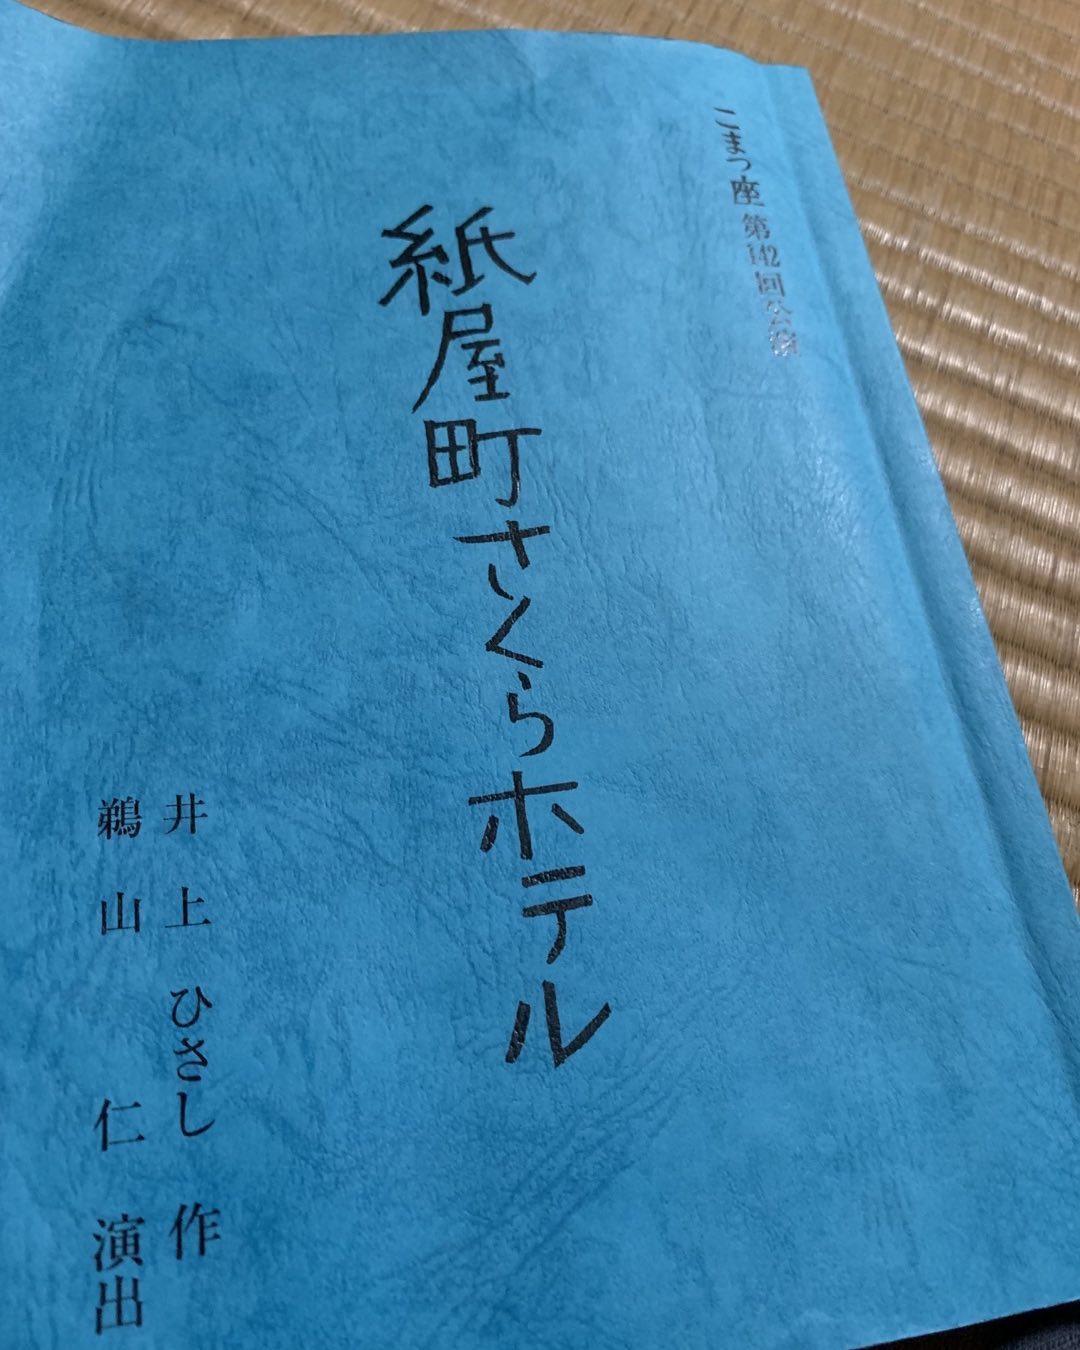 こまつ座 第142回公演
紙屋町さくらホテル
井上ひさし 作
鵜山 仁 演出